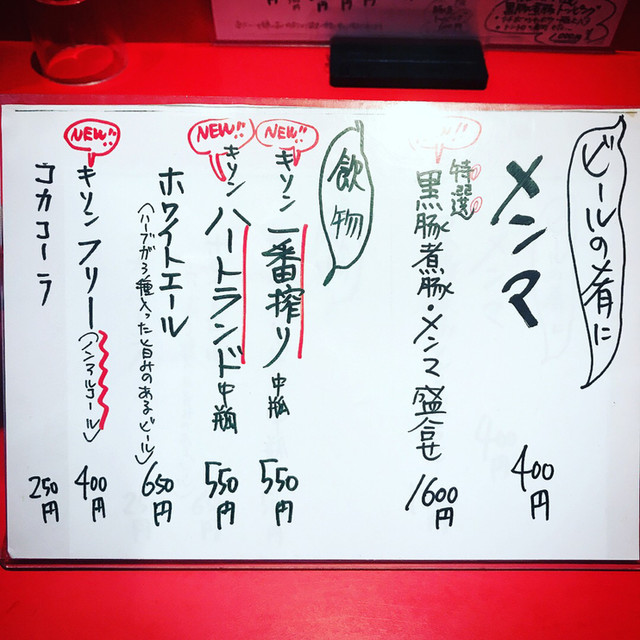 ビールの肴に
メンマ 400円
NEW!!
特選
黒豚煮豚・メンマ盛合せ 1600円
飲物
NEW!!
キリン 一番搾り 中瓶 550円
NEW!!
キリン ハートランド 中瓶 550円
ホワイトエール 650円
(ハーブが3種入った旨みのあるビール)
NEW!!
キリンフリー(ノンアルコール) 400円
コカコーラ 250円